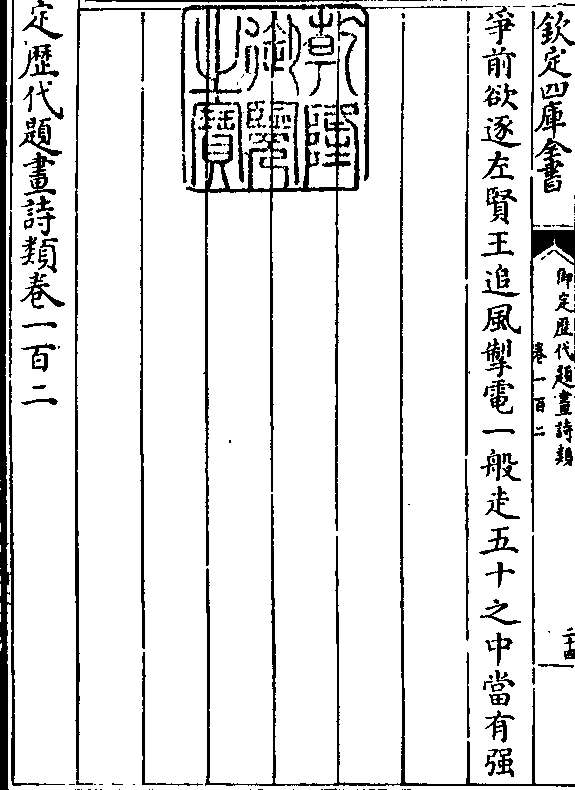 欽定四庫全書
御定歷代題畫詩類
卷一百二
二十四
爭前欲逐左賢王追風掣電一般走五十之中當有强
乾隆御覽之寶
定歷代題畫詩類卷一百二